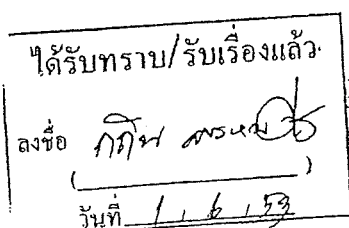 ได้รับทราบ/รับเรื่องแล้ว
ลงชื่อ
(                    )
วันที่ 1 , 6 , 53